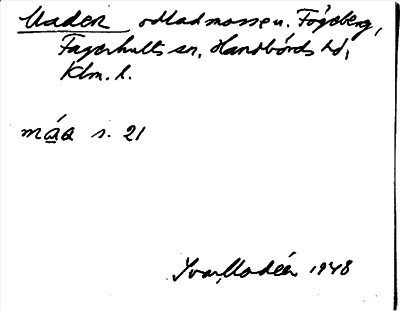 Maden odlad mosse u. Fågeberg,
Fagerhults sn, Handbörds hd,
Klm. l.
måa s. 21
Ivar Modéer 1948